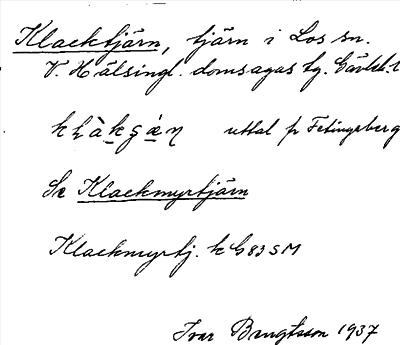 Klacktjärn, tjärn i Los sn.
V. Hälsingl. domsagas tg. Gävleb. l
uttal fr Fetingsberg
Se Klackmyrtjärn
Klackmyrtj. k G 83 SM
Ivar Bengtsson 1937